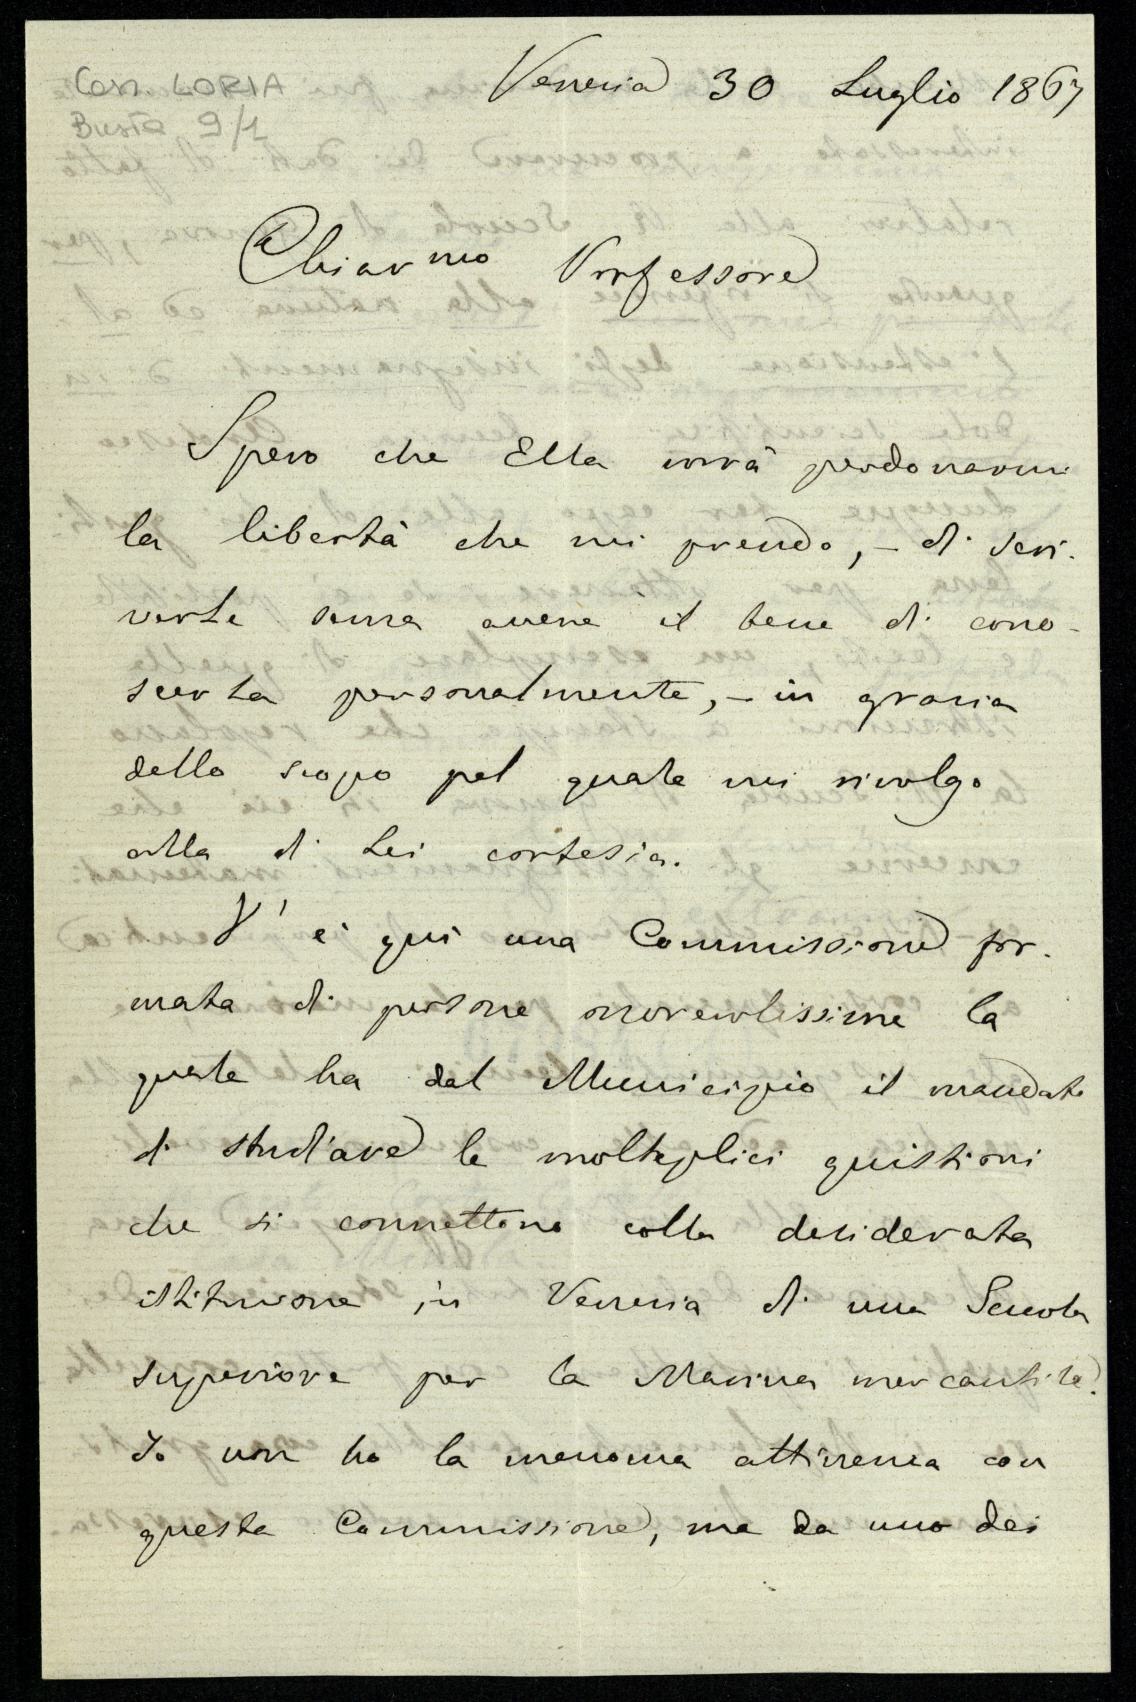 Corr. LORIA
Busta 9/1
Venezia 30 Luglio 1867
Chiarmo Professore
Spero che Ella vorrà perdonarmi
la libertà che mi prendo, – di scri-
verle senza avere il bene di cono-
scerla personalmente, – in grazia
dello scopo pel quale mi rivolgo
alla di Lei cortesia.
V'è qui una Commissione for-
mata di persone onorevolissime la
quale ha dal Municipio il mandato
di studiare le molteplici quistioni
che si connettono colla desiderata
istituzione in Venezia di una Scuola
superiore per la Marina mercantile.
Io non ho la menoma attinenza con
questa Commissione, ma da uno dei